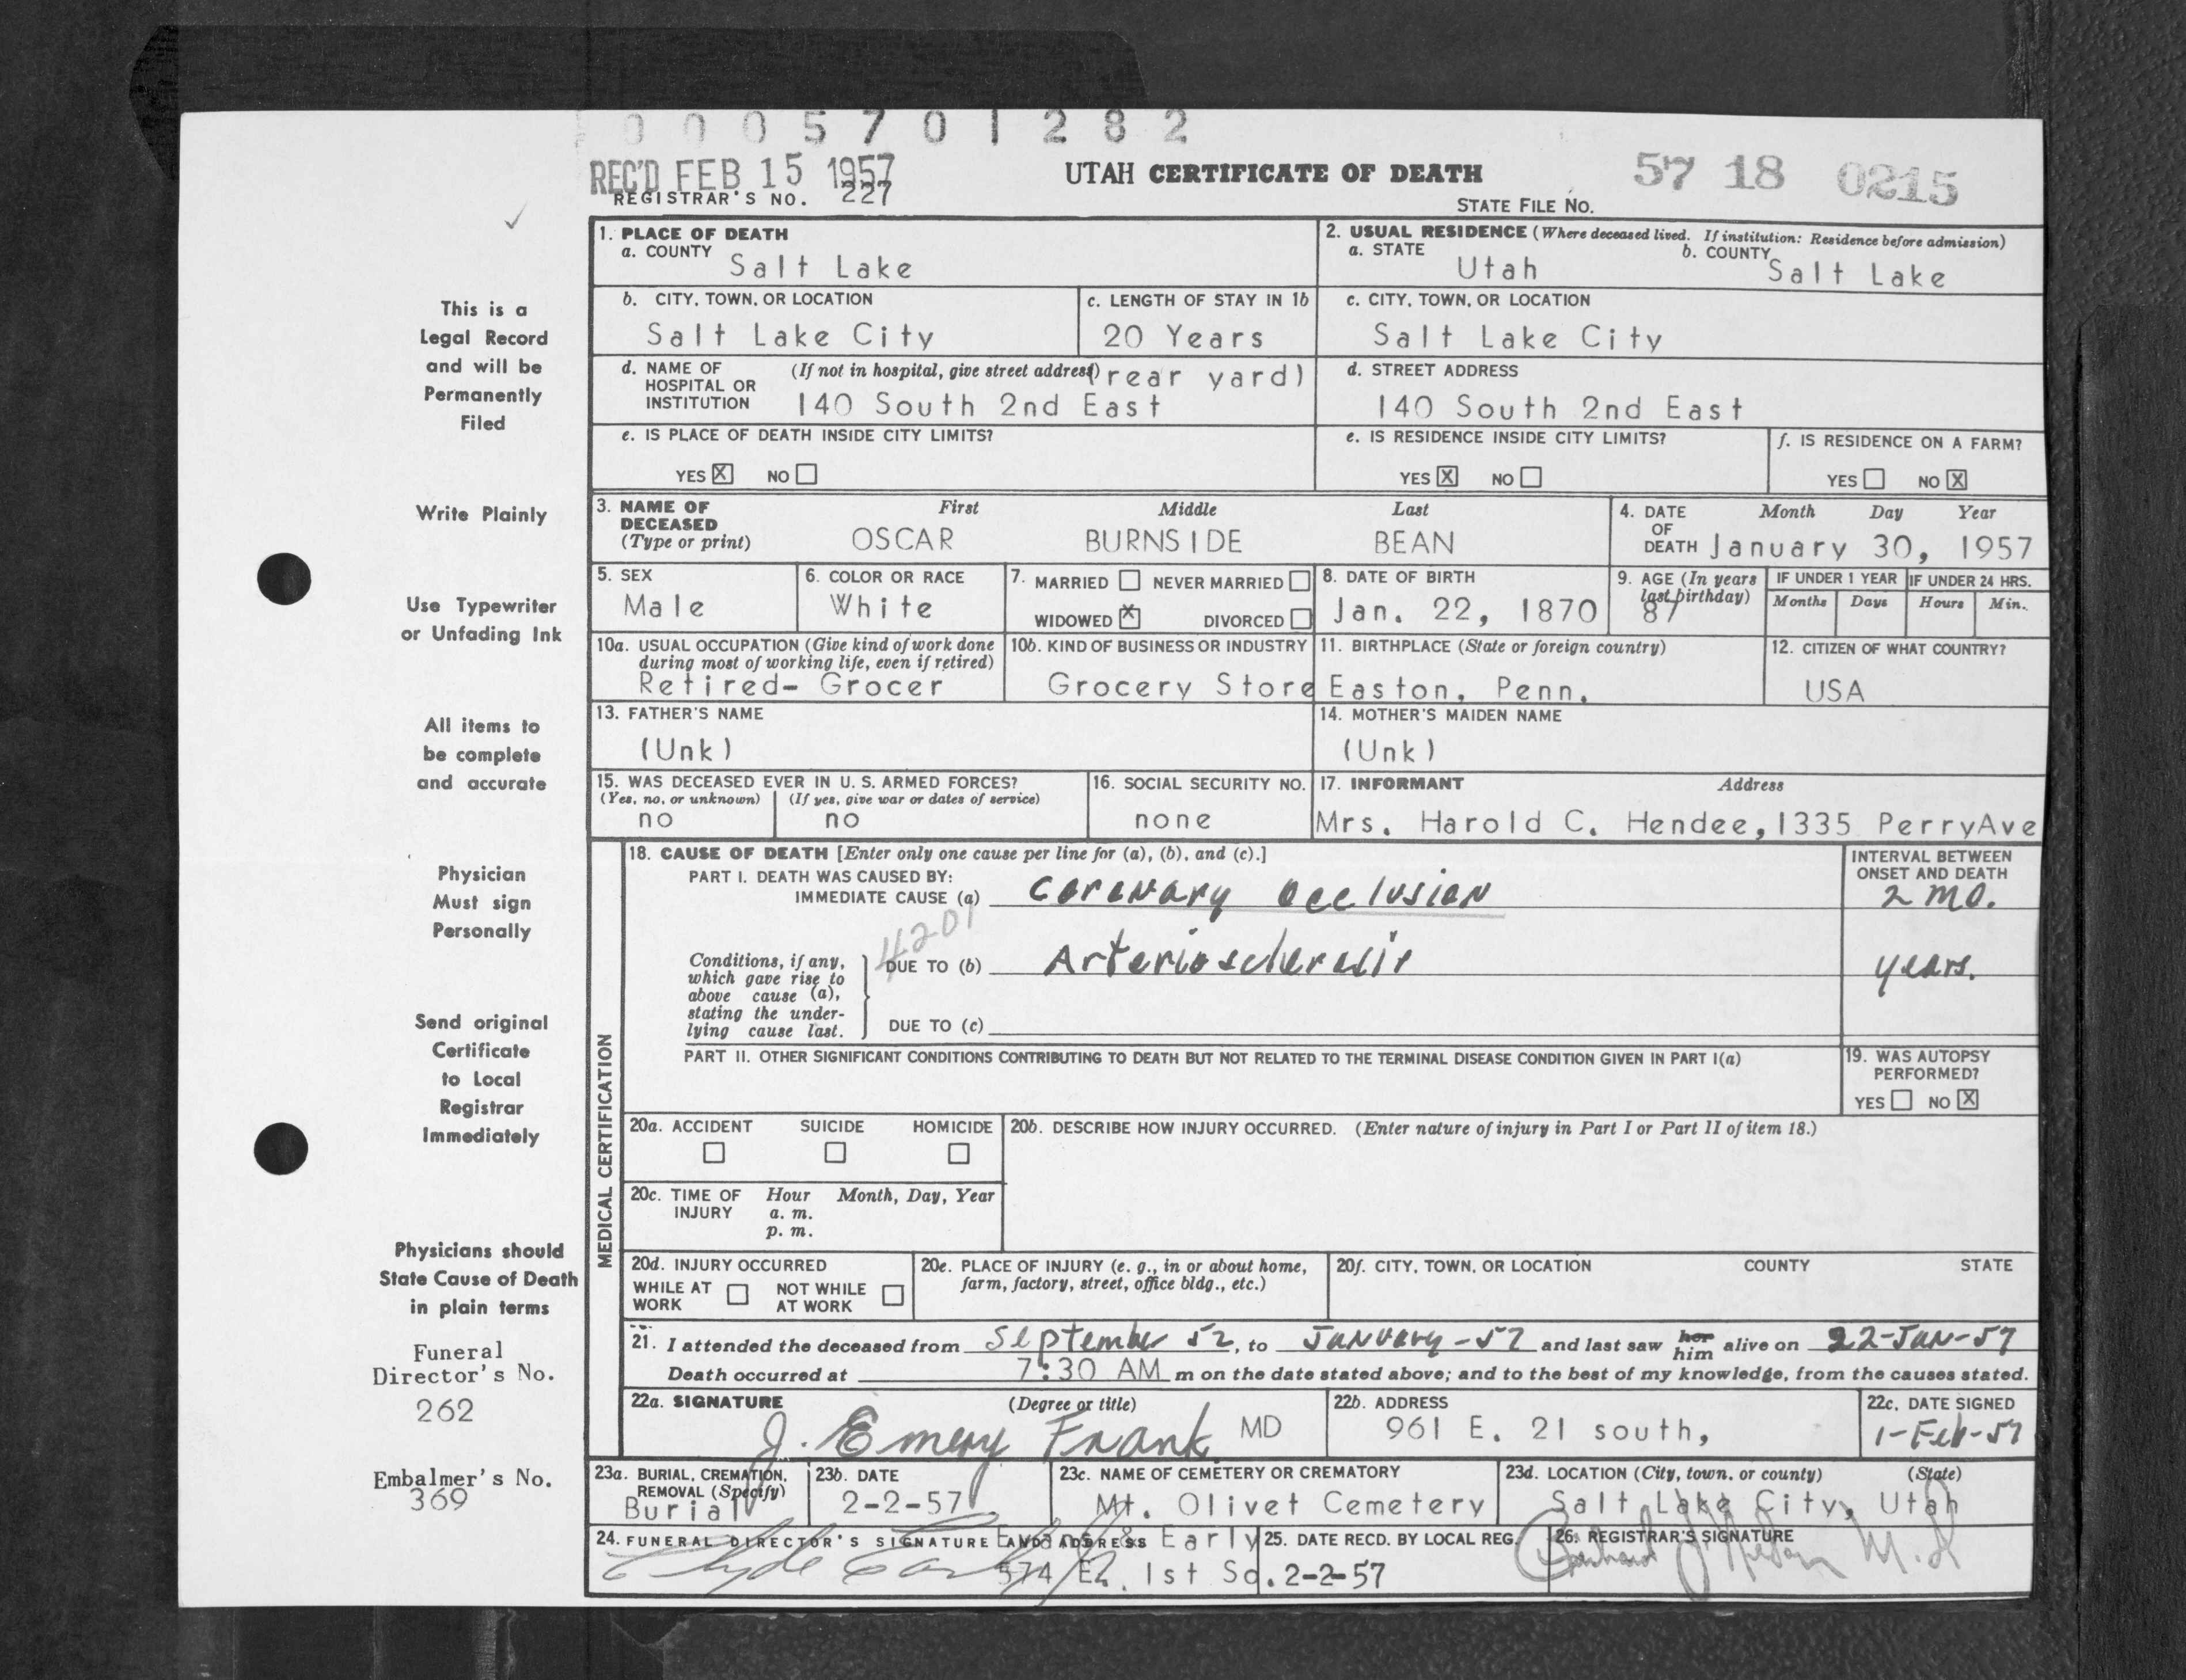 0005701282
REC'D FEB 15 1957
REGISTRAR'S NO. 227
UTAH CERTIFICATE OF DEATH
57 18 0215
STATE FILE NO.
This is a
Legal Record
and will be
Permanently
Filed
Write Plainly
Use Typewriter
or Unfading Ink
All items to
be complete
and accurate
Physician
Must sign
Personally
Send original
Certificate
to Local
Registrar
Immediately
Physicians should
State Cause of Death
in plain terms
Funeral
Director's No.
262
Embalmer's No.
369
1. PLACE OF DEATH
a. COUNTY Salt Lake
2. USUAL RESIDENCE (Where deceased lived. If institution: Residence before admission)
a. STATE Utah b. COUNTY Salt Lake
b. CITY, TOWN, OR LOCATION
Salt Lake City
c. LENGTH OF STAY IN 1b
20 Years
c. CITY, TOWN, OR LOCATION
Salt Lake City
d. NAME OF (If not in hospital, give street address) (rear yard)
HOSPITAL OR
INSTITUTION 140 South 2nd East
d. STREET ADDRESS
140 South 2nd East
e. IS PLACE OF DEATH INSIDE CITY LIMITS?
YES X NO
e. IS RESIDENCE INSIDE CITY LIMITS?
YES X NO
f. IS RESIDENCE ON A FARM?
YES NO X
3. NAME OF DECEASED (Type or print)
First Middle Last
OSCAR BURNSIDE BEAN
4. DATE OF DEATH Month Day Year
January 30, 1957
5. SEX
Male
6. COLOR OR RACE
White
7. MARRIED NEVER MARRIED
WIDOWED X DIVORCED
8. DATE OF BIRTH
Jan. 22, 1870
9. AGE (In years last birthday)
87
IF UNDER 1 YEAR IF UNDER 24 HRS.
Months Days Hours Min.
10a. USUAL OCCUPATION (Give kind of work done
during most of working life, even if retired)
Retired- Grocer
10b. KIND OF BUSINESS OR INDUSTRY
Grocery Store
11. BIRTHPLACE (State or foreign country)
Easton, Penn.
12. CITIZEN OF WHAT COUNTRY?
USA
13. FATHER'S NAME
(Unk)
14. MOTHER'S MAIDEN NAME
(Unk)
15. WAS DECEASED EVER IN U. S. ARMED FORCES?
(Yes, no, or unknown) (If yes, give war or dates of service)
no no
16. SOCIAL SECURITY NO.
none
17. INFORMANT Address
Mrs. Harold C. Hendee, 1335 PerryAve
MEDICAL CERTIFICATION
18. CAUSE OF DEATH [Enter only one cause per line for (a), (b), and (c).]
PART I. DEATH WAS CAUSED BY:
IMMEDIATE CAUSE (a) Coronary Occlusion
INTERVAL BETWEEN
ONSET AND DEATH
2 mo.
4201
Conditions, if any,
which gave rise to
above cause (a),
stating the under-
lying cause last.
DUE TO (b) Arteriosclerosis
years.
DUE TO (c)
PART II. OTHER SIGNIFICANT CONDITIONS CONTRIBUTING TO DEATH BUT NOT RELATED TO THE TERMINAL DISEASE CONDITION GIVEN IN PART I(a)
19. WAS AUTOPSY
PERFORMED?
YES NO X
20a. ACCIDENT SUICIDE HOMICIDE
20b. DESCRIBE HOW INJURY OCCURRED. (Enter nature of injury in Part I or Part II of item 18.)
20c. TIME OF INJURY Hour Month, Day, Year
a. m.
p. m.
20d. INJURY OCCURRED
WHILE AT WORK NOT WHILE AT WORK
20e. PLACE OF INJURY (e. g., in or about home,
farm, factory, street, office bldg., etc.)
20f. CITY, TOWN, OR LOCATION COUNTY STATE
21. I attended the deceased from September 52, to January-57 and last saw her him alive on 22-Jan-57
Death occurred at 7:30 AM m on the date stated above; and to the best of my knowledge, from the causes stated.
22a. SIGNATURE (Degree or title)
J. Emery Frank MD
22b. ADDRESS
961 E. 21 south,
22c. DATE SIGNED
1-Feb-57
23a. BURIAL, CREMATION,
REMOVAL (Specify)
Burial
23b. DATE
2-2-57
23c. NAME OF CEMETERY OR CREMATORY
Mt. Olivet Cemetery
23d. LOCATION (City, town, or county) (State)
Salt Lake City, Utah
24. FUNERAL DIRECTOR'S SIGNATURE AND ADDRESS Evans & Early
Clyde Early 574 E. 1st So.
25. DATE RECD. BY LOCAL REG.
2-2-57
26. REGISTRAR'S SIGNATURE
M.D